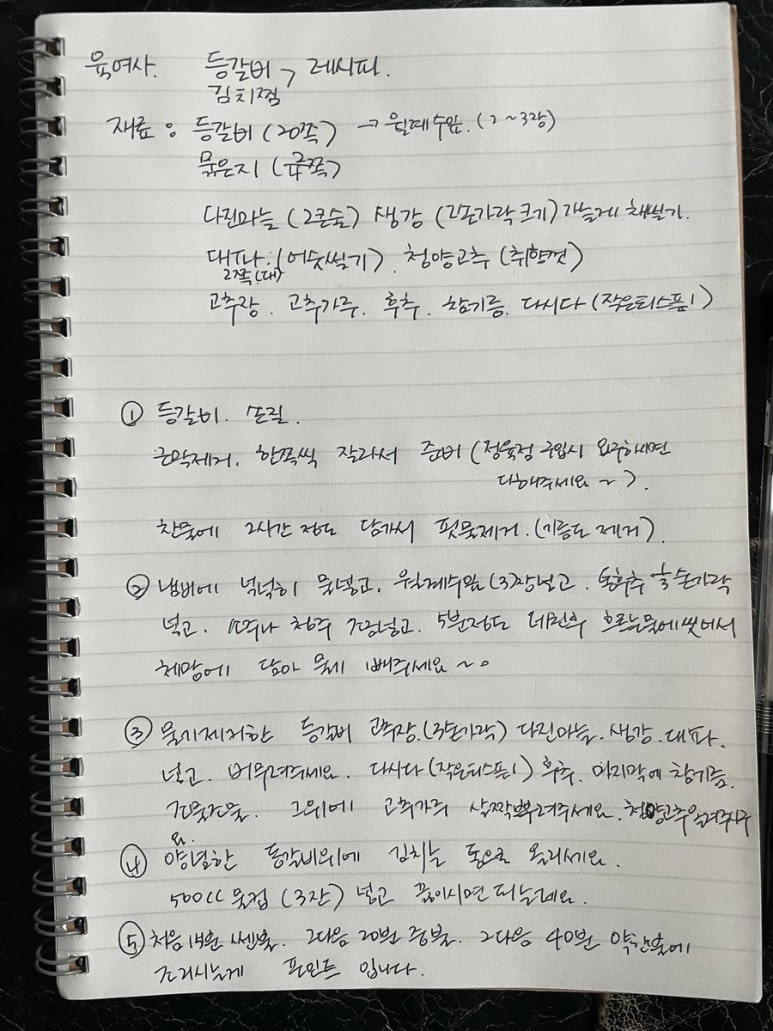 육여사. 등갈비 → 레시피.
김치찜
재료 : 등갈비 (20쪽) → 월계수잎. (2~3장)
묵은지 (쪽)
다진마늘 (2큰술) 생강 (2손가락 크기) 가늘게 채썰기.
대파 : (어슷썰기). 청양고추 (취향껏)
2쪽(대)
고추장. 고추가루. 후추. 참기름. 다시다 (작은티스픈1)
① 등갈비. 손질.
근막제거. 한쪽씩 잘라서 준비 (정육점 구입시 요구하시면
다해주세요 ~).
찬물에 2시간 정도 담가서 핏물제거. (기름도 제거).
② 냄비에 넉넉히 물넣고. 월계수잎 (3)장넣고. 통후추 손가락
넣고. 쏘주나 청주 넣고. 5분정도 데친후 흐르는물에 씻어서
체망에 담아 물기 빼주세요 ~。
③ 물기제거한 등갈비 고추장. (3손가락) 다진마늘. 생강. 대파.
넣고. 버무려주세요. 다시다 (작은티스픈1) 후추. 마지막에 참기름.
조물조물. 그위에 고추가루 살짝뿌려주세요. 청양고추올려주시구
요.
④ 양념한 등갈비위에 김치를 통으로 올리세요.
500cc 물컵 (3잔) 넣고 끓이시면 되는데요.
⑤ 처음 쎈불. 그다음 20분 중불. 그다음 40분 약한불에
조리시는게 포인트 입니다.